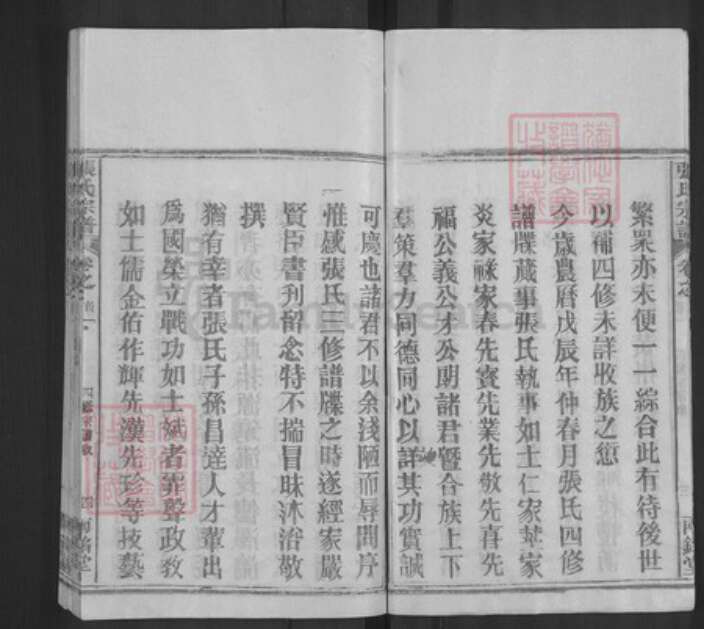 繁衆亦未便一一綜合此有待後世
以補四修未詳收族之愆
今歲農曆戊辰年仲春月張氏四修
譜牒蕆事張氏執事如士仁家棻家
炎家祿家春先賓先業先敬先喜先
福公義公才公朗諸君暨合族上下
羣策羣力同德同心以詳其功實誠
可慶也諸君不以余淺陋而辱問序
惟感張氏三修譜牒之時遂經家嚴
賢臣書刋留念特不揣冒昧沐浴敬
撰
猶有幸者張氏子孫昌達人才輩出
爲國榮立戰功如士斌者霏聲政教
如士儒金佑作輝先漢先珍等技藝
張氏宗譜
卷之
張氏宗譜
卷之
四